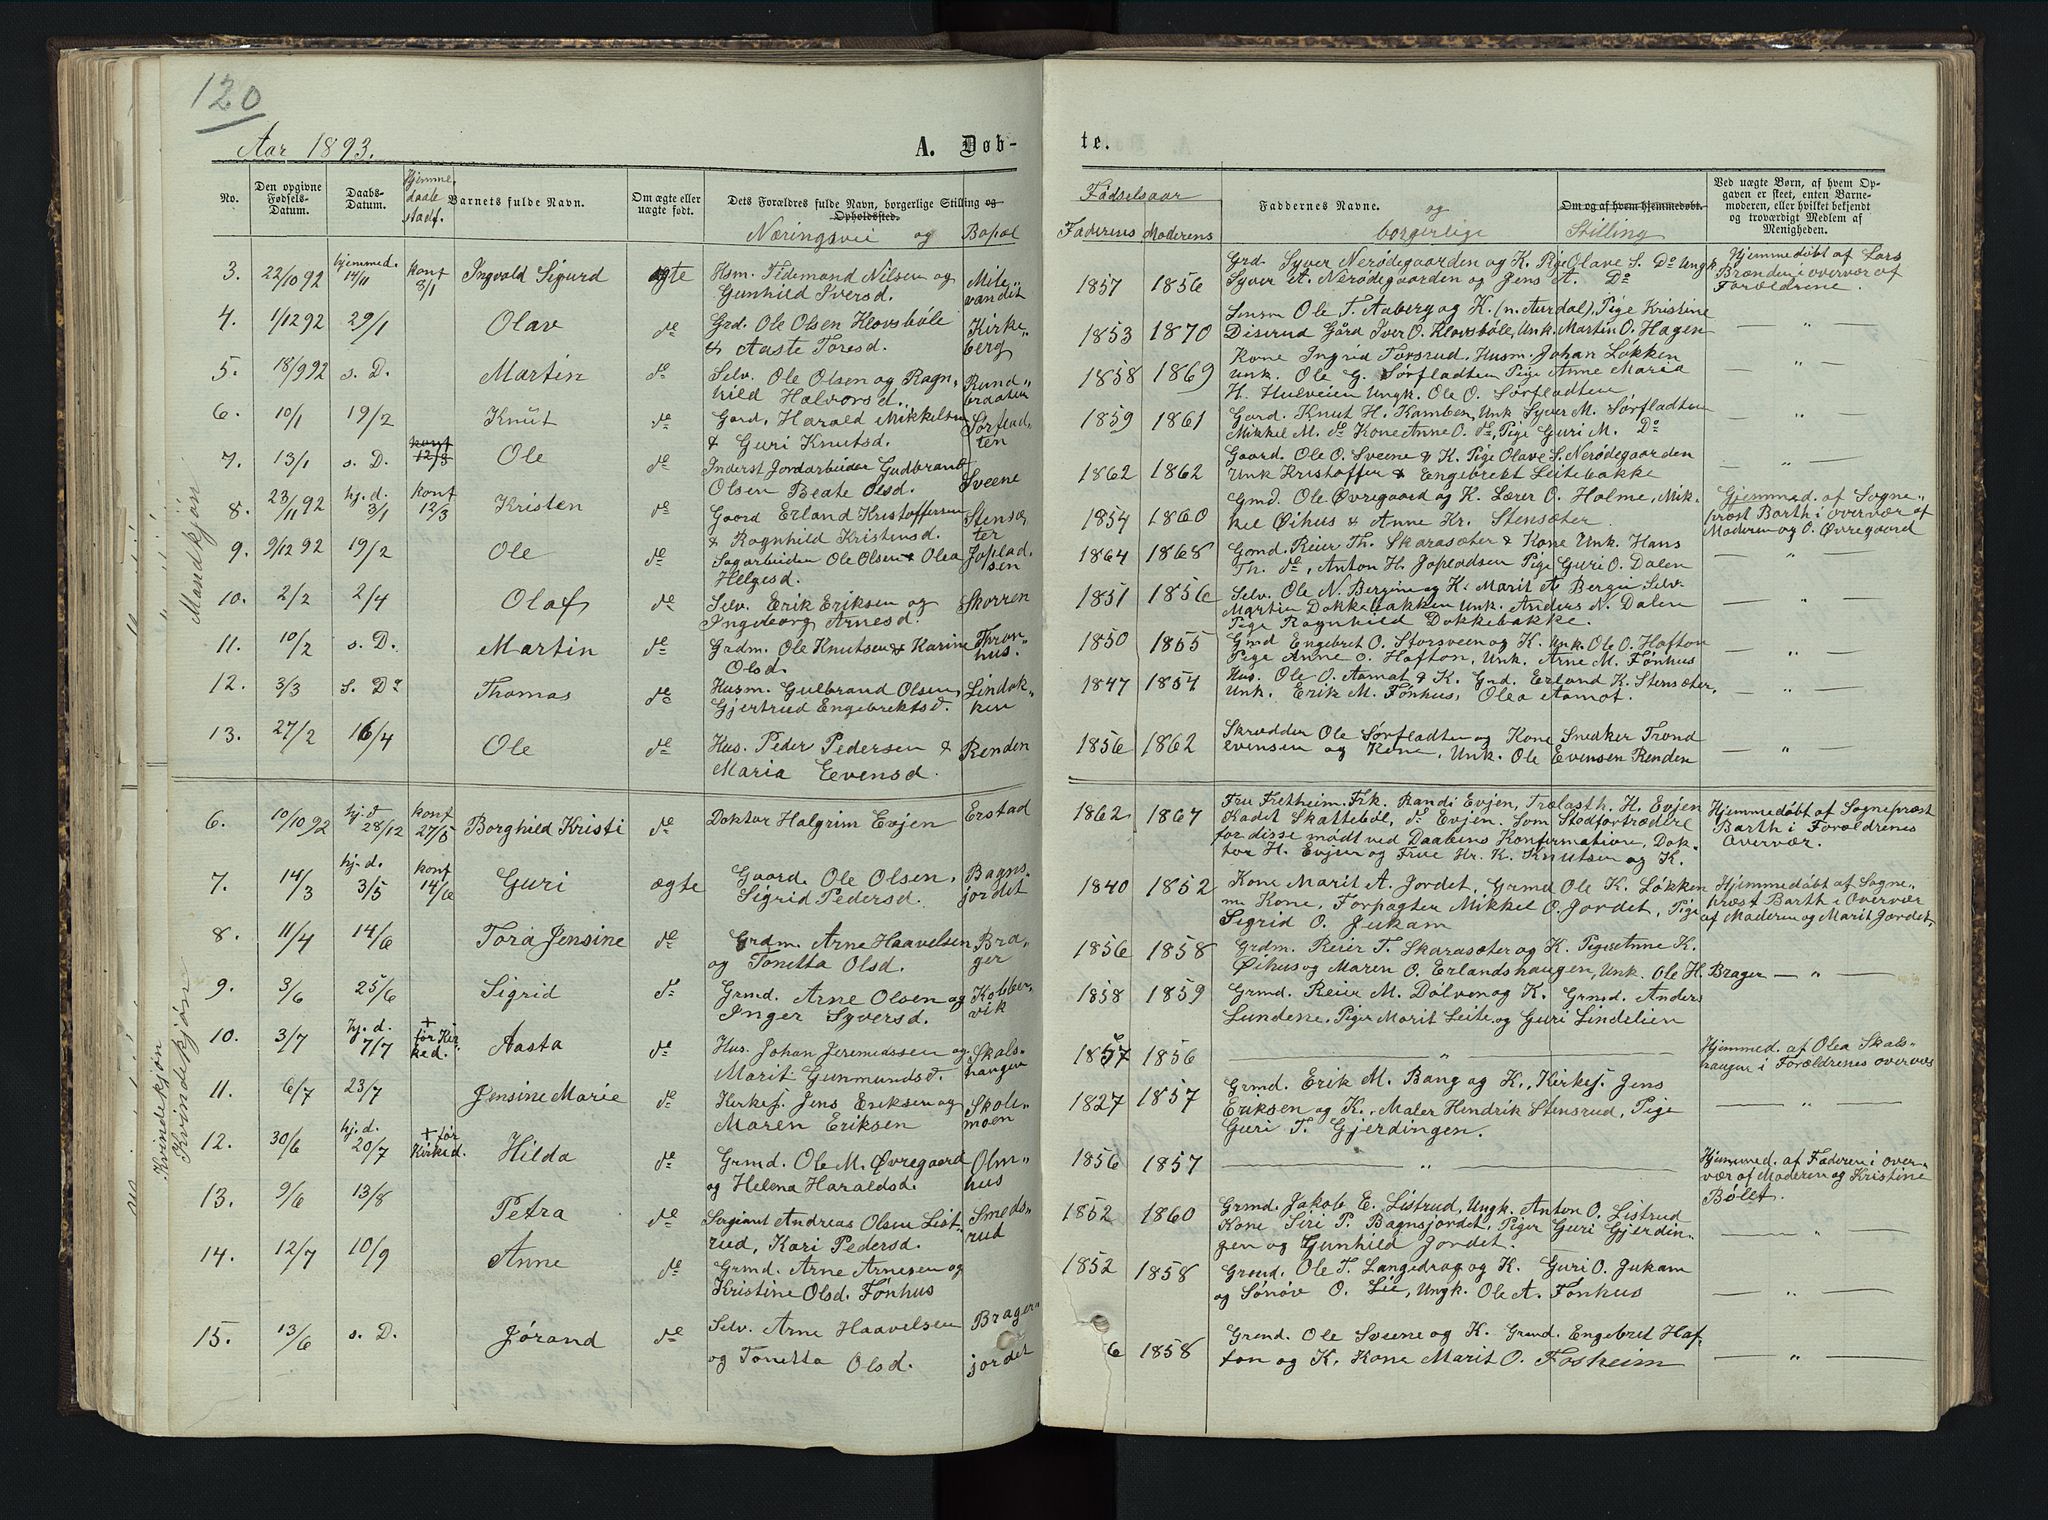 120
Aar 1893. A. Døb-
No.
Den opgivne Fødsels-Datum.
Daabs-Datum.
Hjemme-daab stadf.
Barnets fulde Navn.
Om ægte eller uægte født.
Dets Forældres fulde Navn, borgerlige Stilling og Opholdssted.
Næringsvei og Bopæl
Mandkjøn
3. 22/10 92 hjemmed. 14/11 konf 8/1 Ingvald Sigurd ægte Hsm. Tidemand Nilsen og Mile-
Gunhild Iversd. vandet
4. 1/12 92 29/1 Olav do Grd. Ole Olsen Klovsbøle Kirke-
& Aaste Toresd. berg
5. 18/9 92 s. D. Martin do Selv. Ole Olsen og Ragn- Rund-
hild Halvorsd. braaten
6. 10/1 19/2 Knut do Gard. Harald Mikkelsen Sørflad-
& Guri Knutsd. ten
7. 13/1 s. D. konf 12/3 Ole do Inderst Jordarbeider Gudbrand
Olsen Beate Olsd. Sveene
8. 23/11 92 hj. d. 3/1 konf 12/3 Kristen do Gaard Erland Kristoffersen Stensæ-
& Ragnhild Kristensd. ter
9. 9/12 92 19/2 Ole do Sagarbeider Ole Olsen & Olea Joplad-
Helgesd. sen
10. 2/2 2/4 Olaf do Selv. Erik Eriksen og Skorren
Ingeborg Arnesd.
11. 10/2 s. D. Martin do Gadm. Ole Knutsen & Karine Thron-
Olsd. hus.
12. 3/3 s. Do Thomas do Husm. Gulbrand Olsen, Lindøk-
Gjertrud Engebrektsd. ken
13. 27/2 16/4 Ole do Hus. Peder Pedersen & Renden
Maria Eevensd.
Kvindekjøn
Kvindekjøn
6. 10/10 92 hj. d 28/12 konf 27/5 Borghild Kristi do Doktor Halgrim Evjen Erstad
7. 14/3 hj. d. 3/5 konf 14/6 Guri ægte Gaard. Ole Olsen, Bagns-
Sigrid Pedersd. jordet
8. 11/4 14/6 Tora Jensine do Grdm. Arne Haavelsen Bra-
og Tonetta Olsd. ger
9. 3/6 25/6 Sigrid do Grmd. Arne Olsen og Kobber-
Inger Syversd. vik
10. 3/7 hj. d. 7/7 + før Kirked. Aasta do Hus. Johan Jeremiassen og Skals-
Marit Gunmundsd. haugen
11. 6/7 23/7 Jensine Marie do Kirkesj. Jens Eriksen og Skole-
Maren Eriksen moen
12. 30/6 hj. d. 20/7 + før Kirked. Hilda do Grmd. Ole M. Øvregaard Olm-
og Helena Haraldsd. hus
13. 9/6 13/8 Petra do Sergiant Andreas Olsen List- Smeds-
rud, Kari Pedersd. rud
14. 12/7 10/9 Anne do Grmd. Arne Arnesen og
Kristine Olsd. Fønhus
15. 13/6 s. D. Jørand do Selv. Arne Haavelsen Brager-
og Tonetta Olsd. jordet
te.
Fødselsaar
Faderens Moderens
Faddernes Navne. og borgerlige Stilling
Om og af hvem hjemmedøbt.
Ved uægte Børn, af hvem Op-
gaven er skeet, enten Barne-
moderen, eller hvilket bekjendt
og troværdigt Medlem af
Menigheden.
Grd. Syver Nerødegaarden og K. Pige Olave S. Do Ungk Hjemmedøbt af Lars
1857 1856 Syver A. Nerødegaarden og Jens A. Do Brænden i overvær af
Forældrene.
Lensm Ole T. Aaberg og K. (n. Aurdal), Pige Kristine
1853 1870 Diserud Gård Iver O. Klovsbøle, Unk. Martin O. Hagen — " —
Kone Ingrid Torsrud, Husm. Johan Løkken
1858 1869 Unk. Ole G. Sørfladten Pige Anne Maria — " —
H. Hulveien Ungk. Ole O. Sørfladten
1859 1861 Gard. Knut H. Kamben, Unk Syver M. Sørfladten — " —
Mikkel M. do Kone Anne O. do, Pige Guri M. Do
Gaard. Ole O. Sveene & K. Pige Olave S. Nerødegaarden
1862 1862 Unk Kristoffer & Engebrekt Leitebakke — " —
Gmd. Ole Øvregaard og K. Lærer O. Holme, Mik- Hjemmed. af Sogne-
1854 1860 kel Øihus & Anne Kr. Stensæter. præst Barth i overvær af
Moderen og O. Øvregaard
1864 1868 Gomd. Reier Th. Skarasæter & Kone Unk. Hans
Th. do, Anton H. Jopladsen Pige Guri O. Dalen — " —
1851 1856 Selv. Ole N. Bergine og K. Marit A. Bergin Selv.
Martin Dokkebakken Unk. Anders N. Dalen — " —
Pige Ragnhild Dokkebakke.
1850 1855 Gmd Engebret O. Storsveen og K. Unk. Ole O. Hafton
Pige Anne O. Hafton, Unk. Arne M. Fønhus — " —
1847 1854 Hus. Ole O. Aamot & K. Gnd. Erland K. Stensæter,
Unk. Erik M. Fønhus, Olea Aamot. — " —
1856 1862 Skrædder Ole Sørfladten og Kone Snedker Trond
Evensen og Kone, Unk. Ole Evensen Renden — " —
1862 1867 Fru Fretheim, Frk. Randi Evjen, Trælasth. H. Evjen Hjemmedøbt af Sognepræst
Kadet Skattebøl, do Evjen. Som Stedfortrædere Barth i Forældrenes
for disse mødt ved Daabens Konfirmation, Dok- Overvær.
tor H. Evjen og Frue Hr. K. Knutsen og K.
1840 1852 Kone Marit A. Jordet, Grmd Ole K. Løkken Hjemmedøbt af Sogne-
m Kone, Forpagter Mikkel O. Jordet, Pige præst Barth i Overvær
Sigrid O. Jukam af Moderen og Marit Jordet,
1856 1858 Grdm. Reier T. Skarasæter og K. Pige Anne K.
Øihus og Maren O. Erlandshaugen, Unk. Ole H. Brager — " —
1858 1859 Grmd. Reier M. Dölven og K. Grmd. Anders
Lundene, Piger Marit Leite og Guri Lindelien
1857 1856 — " — Hjemmed. af Olea Skals-
haugen i Forældrenes overvær
1827 1857 Grmd. Erik M. Bang og K., Kirkesj. Jens
Eriksen og K., Maler Hendrik Stensrud, Pige — " —
Guri T. Gjerdingen.
1856 1857 — " — Hjemmed. af Faderen i over-
vær af Moderen og Kristine
Bølet.
1852 1860 Grmd. Jakob E. Listrud, Ungk. Anton O. Listrud
Kone Siri P. Bagnsjordet, Piger Guri Gjerdin-
gen og Gunhild Jordet. — " —
1852 1858 Grmd. Ole T. Langedrag og K. Guri O. Jukam
og Sønøv O. Lie, Ungk. Ole A. Fønhus — " —
6 1858 Grmd. Ole Sveene og K. Grmd. Engebret Haf-
ton og K. Kone Marit O. Fosheim — " —